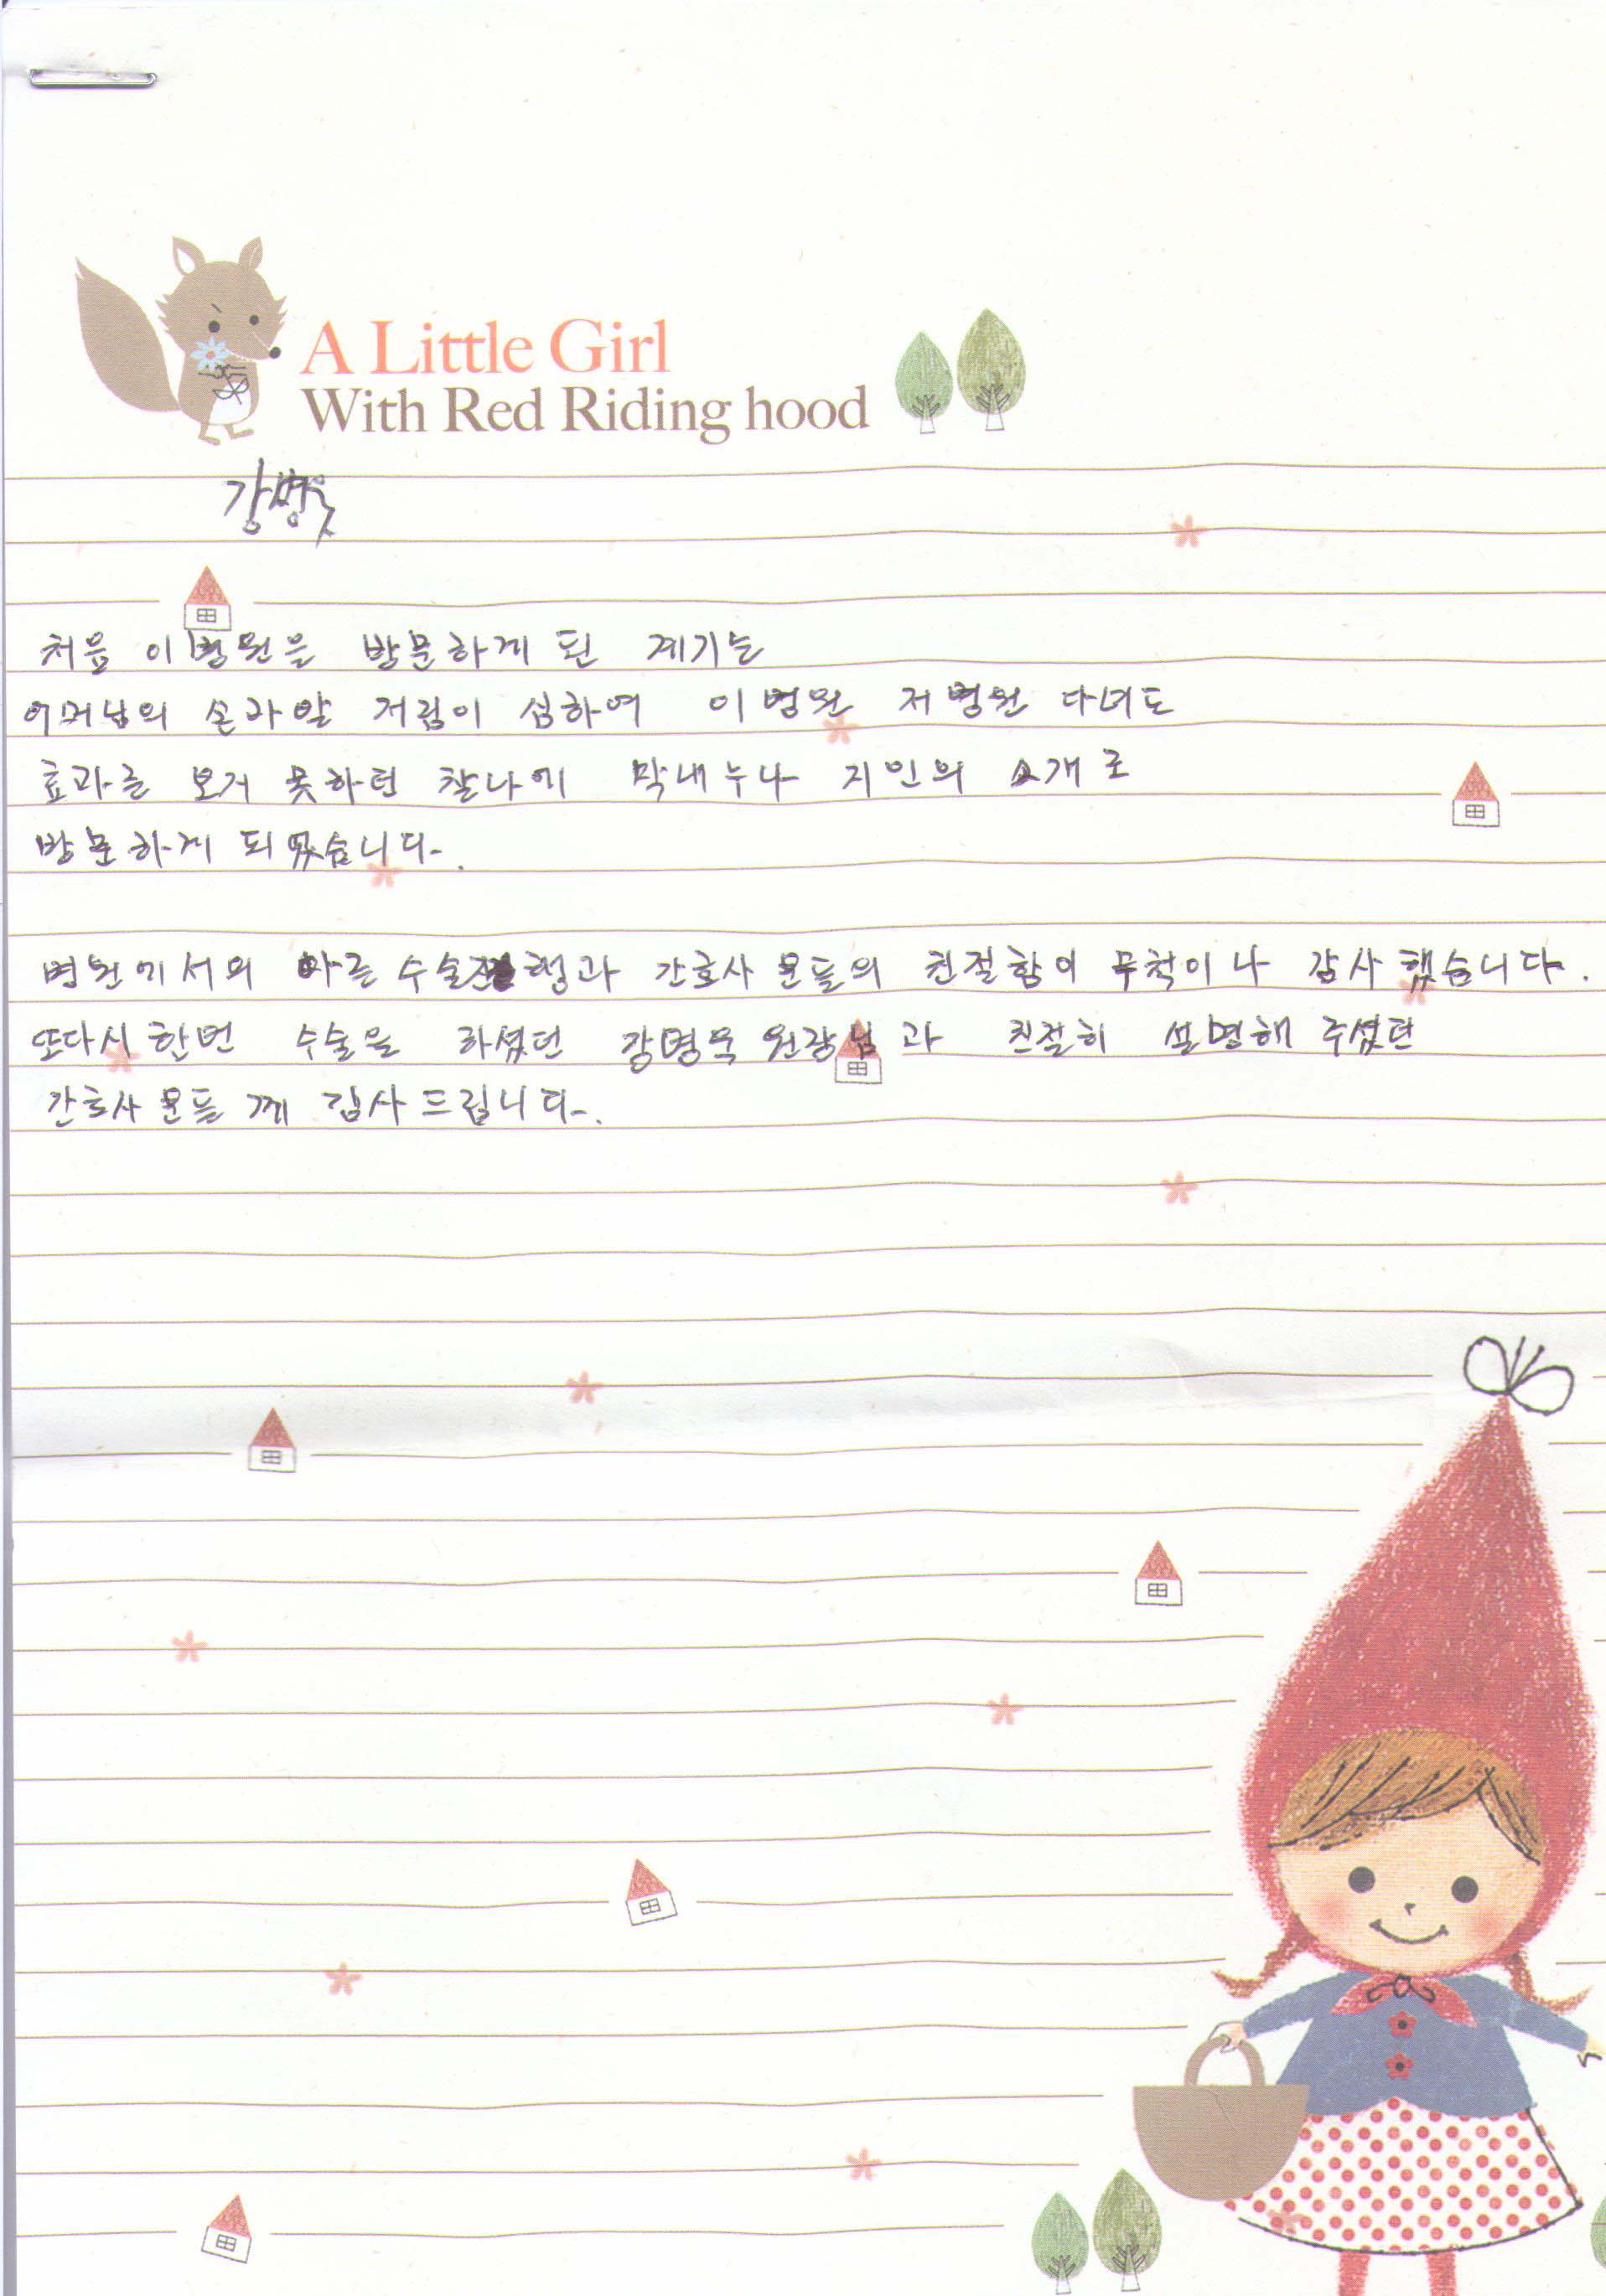 A Little Girl
With Red Riding hood
처음 이 병원을 방문하게 된 계기는
어머님의 손과 발 저림이 심하여 이 병원 저 병원 다녀도
효과를 보지 못하던 찰나에 막내누나 지인의 소개로
방문하게 되었습니다.
병원에서의 빠른 수술진행과 간호사 분들의 친절함이 무척이나 감사했습니다.
또다시 한번 수술을 하셨던 강병욱 원장님과 친절히 설명해 주셨던
간호사 분들께 감사드립니다.